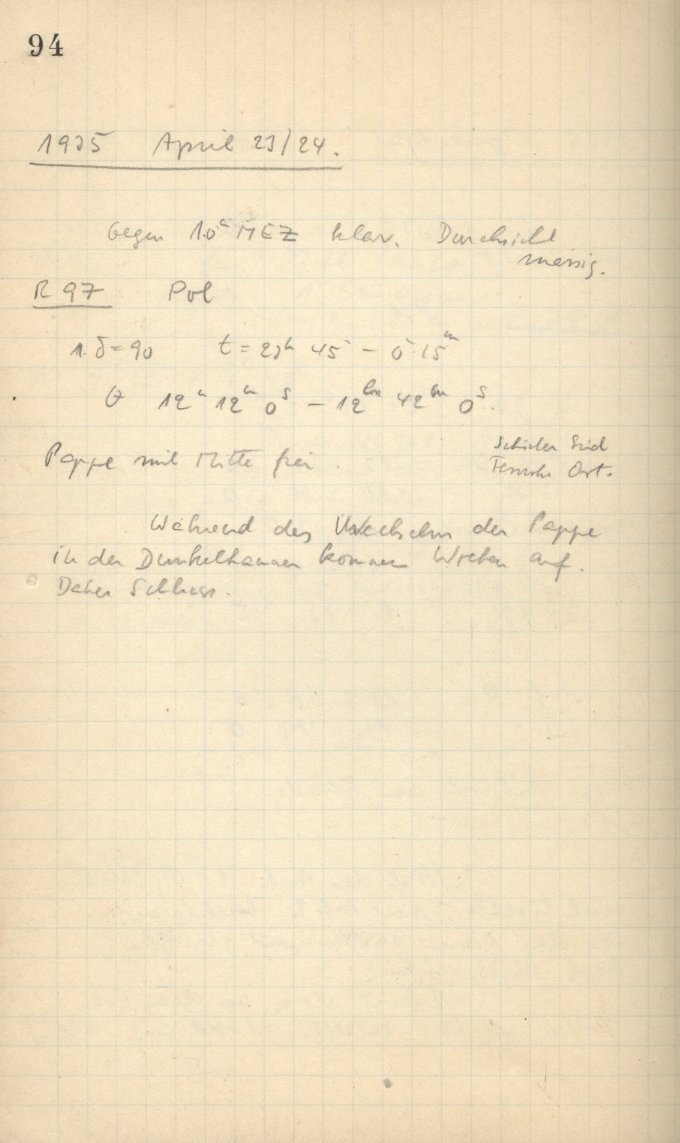 94
1935 April 23/24.
Gegen 10h MEZ klar. Durchsicht
mässig.
R 97 Pol
1. δ=90 t = 23h 45 – 0 15m
θ 12h 12m 0s – 12h 42m 0s.
Pappe mit Mitte frei.
Schieber Süd
Fernrohr Ost.
Während des Wechselns der Pappe
in der Dunkelkammer kommen Wolken auf.
Daher Schluss.